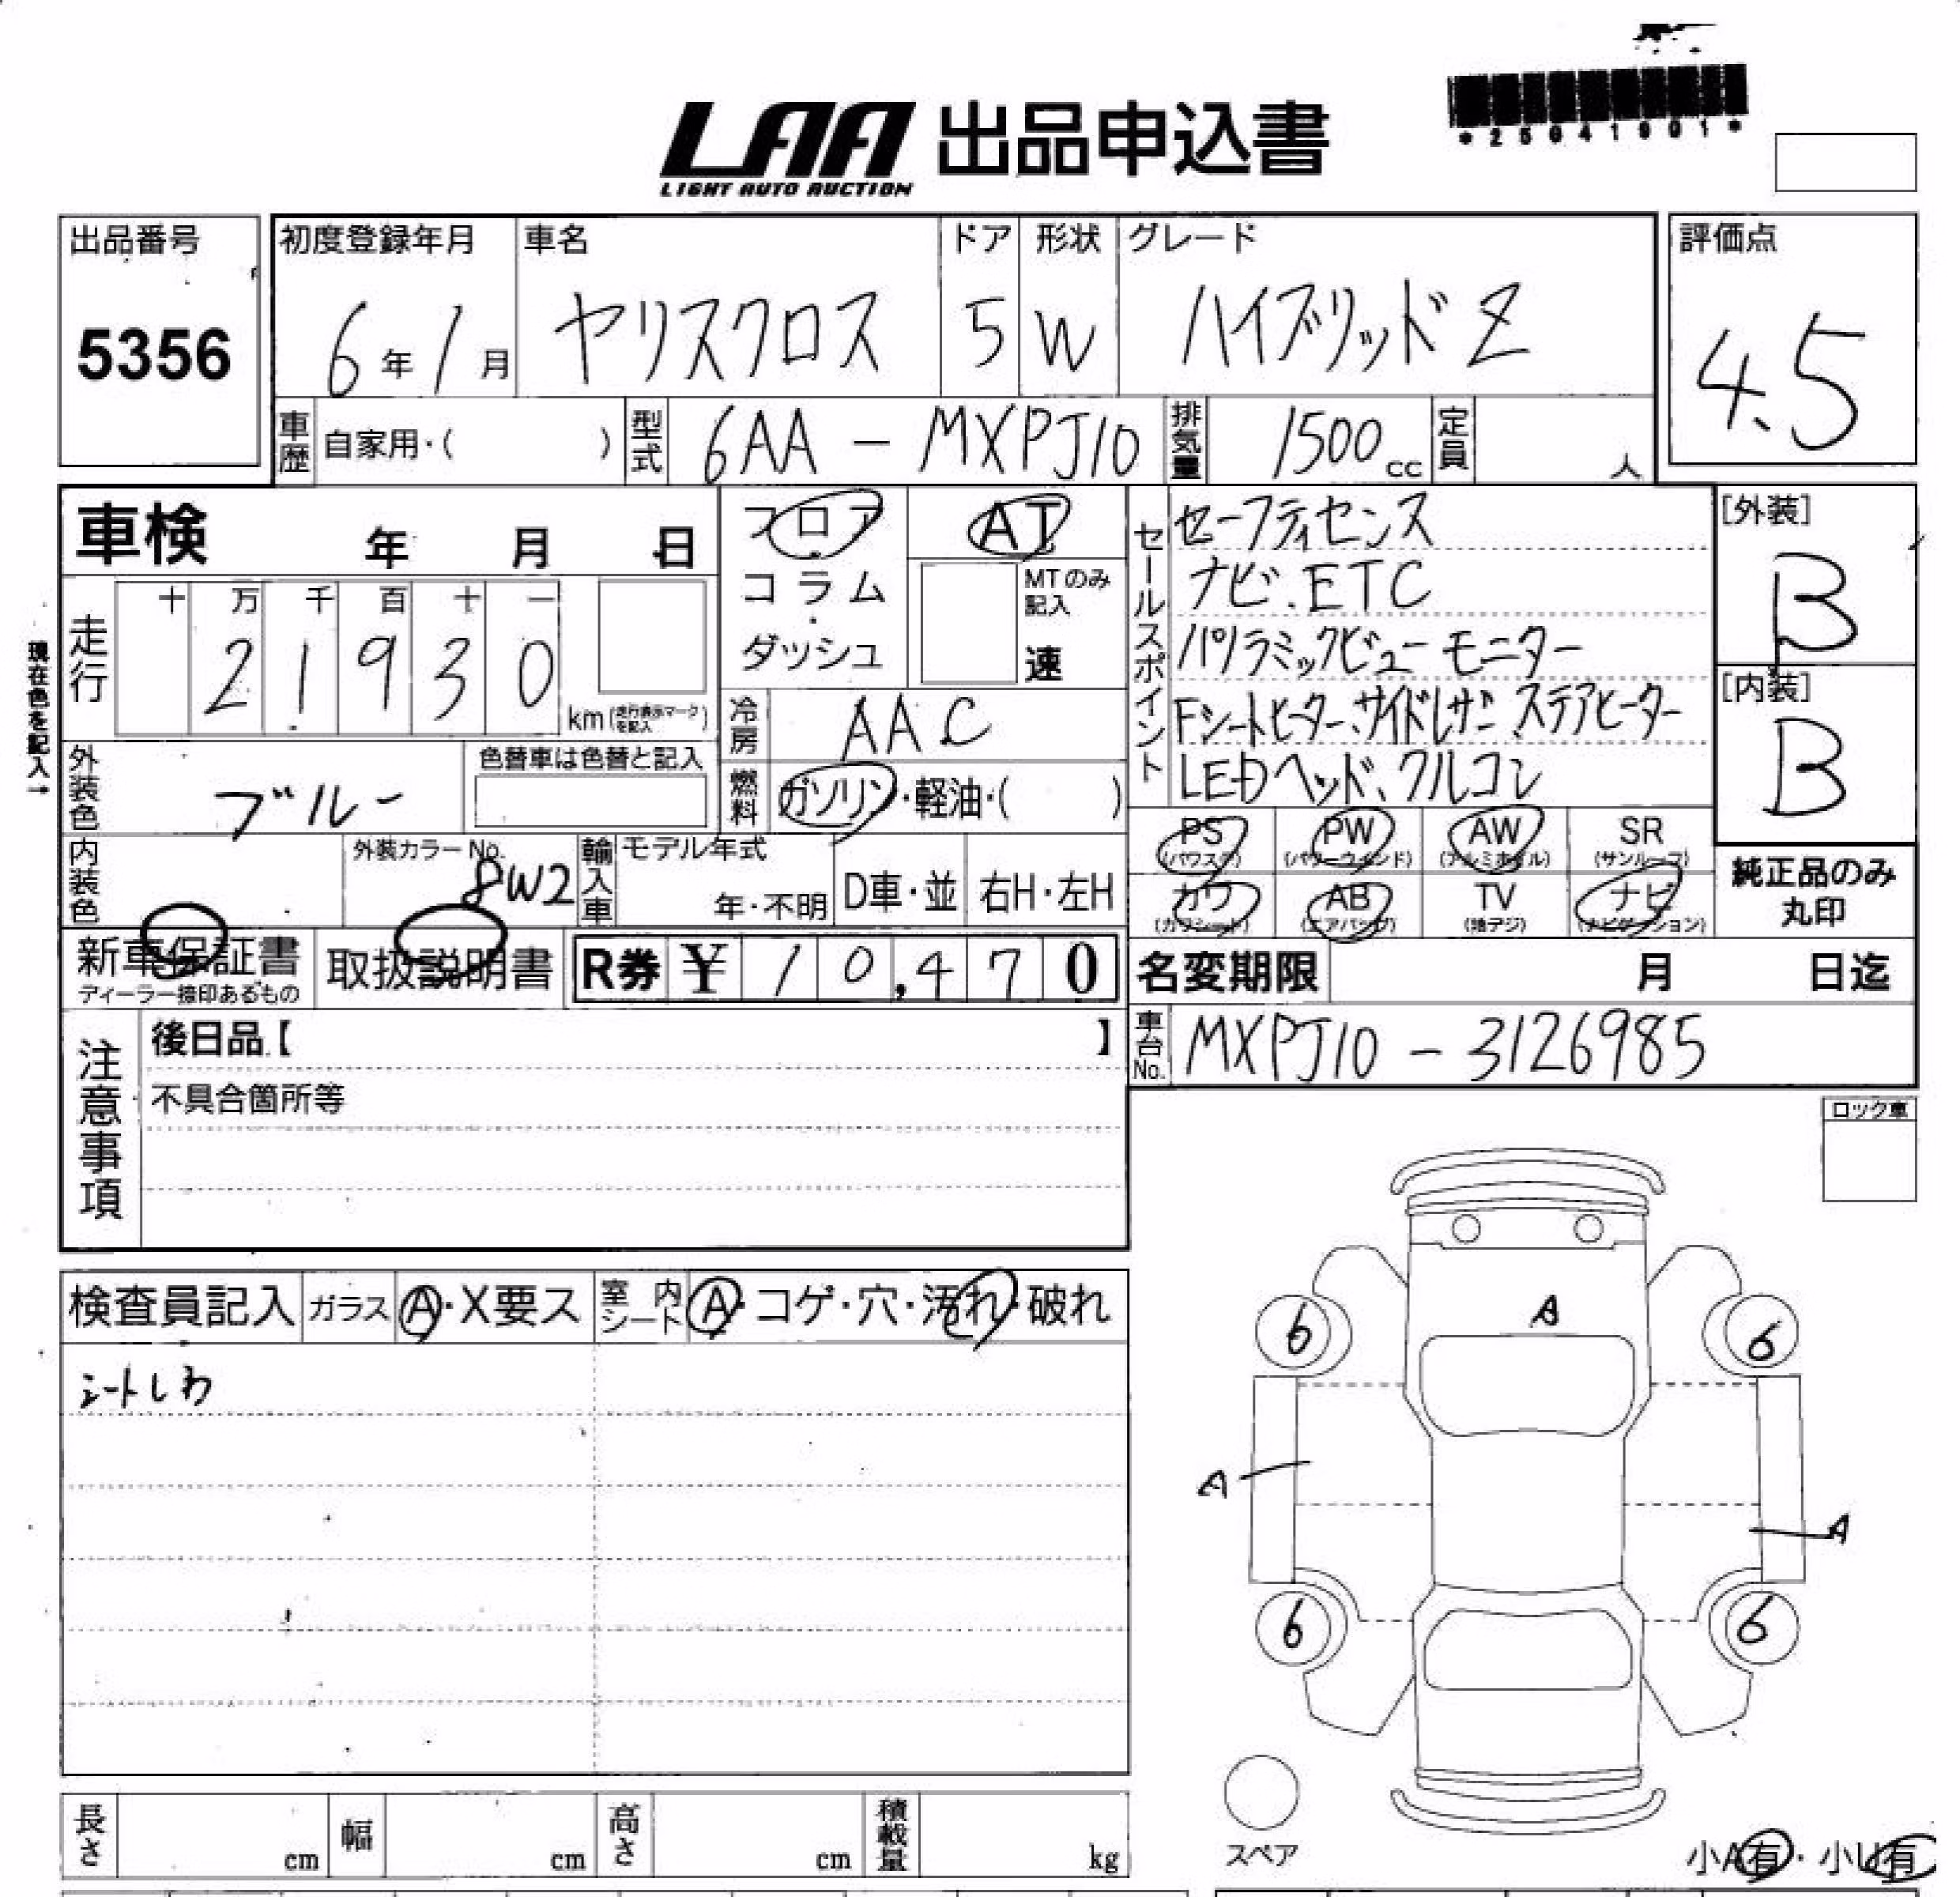 *25041901*
LAA 出品申込書
LIGHT AUTO AUCTION
出品番号
5356
初度登録年月
6年1月
車名
ヤリスクロス
ドア
5
形状
W
グレード
ハイブリッド Z
評価点
4.5
車歴 自家用・( )
型式 6AA - MXPJ10
排気量 1500cc
定員 人
車検 年 月 日
走行
十 万 千 百 十 一
2 1 9 3 0
km (走行表示マークを記入)
現在色を記入→
外装色 ブルー
色替車は色替と記入
内装色
外装カラーNo. 8W2
フロア
・
コラム
・
ダッシュ
AT
MTのみ記入
速
冷房 AAC
燃料 ガソリン・軽油・( )
輸入車
モデル年式
年・不明
D車・並
右H・左H
セールスポイント
セーフティセンス
ナビ、ETC
パノラミックビューモニター
Fシートヒーター、サイドレザー ステアヒーター
LEDヘッド、クルコン
[外装]
B
[内装]
B
PS (パワステ)
PW (パワーウインド)
AW (アルミホイル)
SR (サンルーフ)
カワ (カワシート)
AB (エアバッグ)
TV (地デジ)
ナビ (ナビゲーション)
純正品のみ
丸印
新車保証書
ディーラー捺印あるもの
取扱説明書
R券 ¥ 10,470
名変期限 月 日迄
車台No. MXPJ10 - 3126985
注意事項
後日品【 】
不具合箇所等
ロック車
検査員記入
ガラス A・X要ス
室内シート A・コゲ・穴・汚れ・破れ
シートしわ
A
6
6
A
A
6
6
スペア
小A有・小U有
長さ cm
幅 cm
高さ cm
積載量 kg